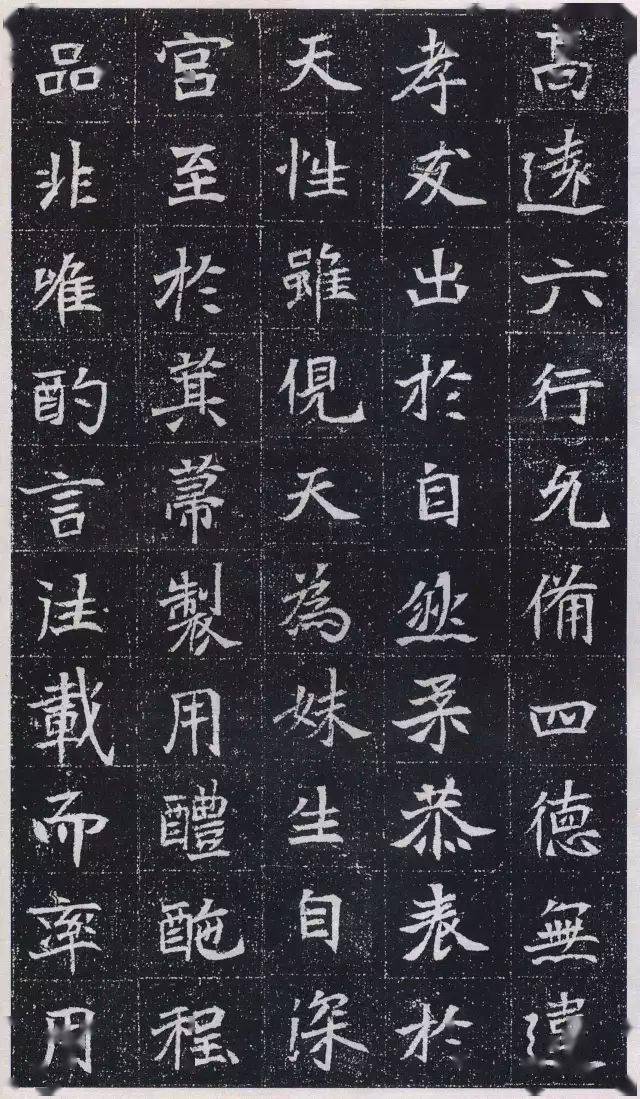 高遠六行允備四徳無違
孝友出於自然柔恭表於
天性雖俔天為妹生自深
宮至於萁菷製用醴酏程
品非唯酌言往載而率用